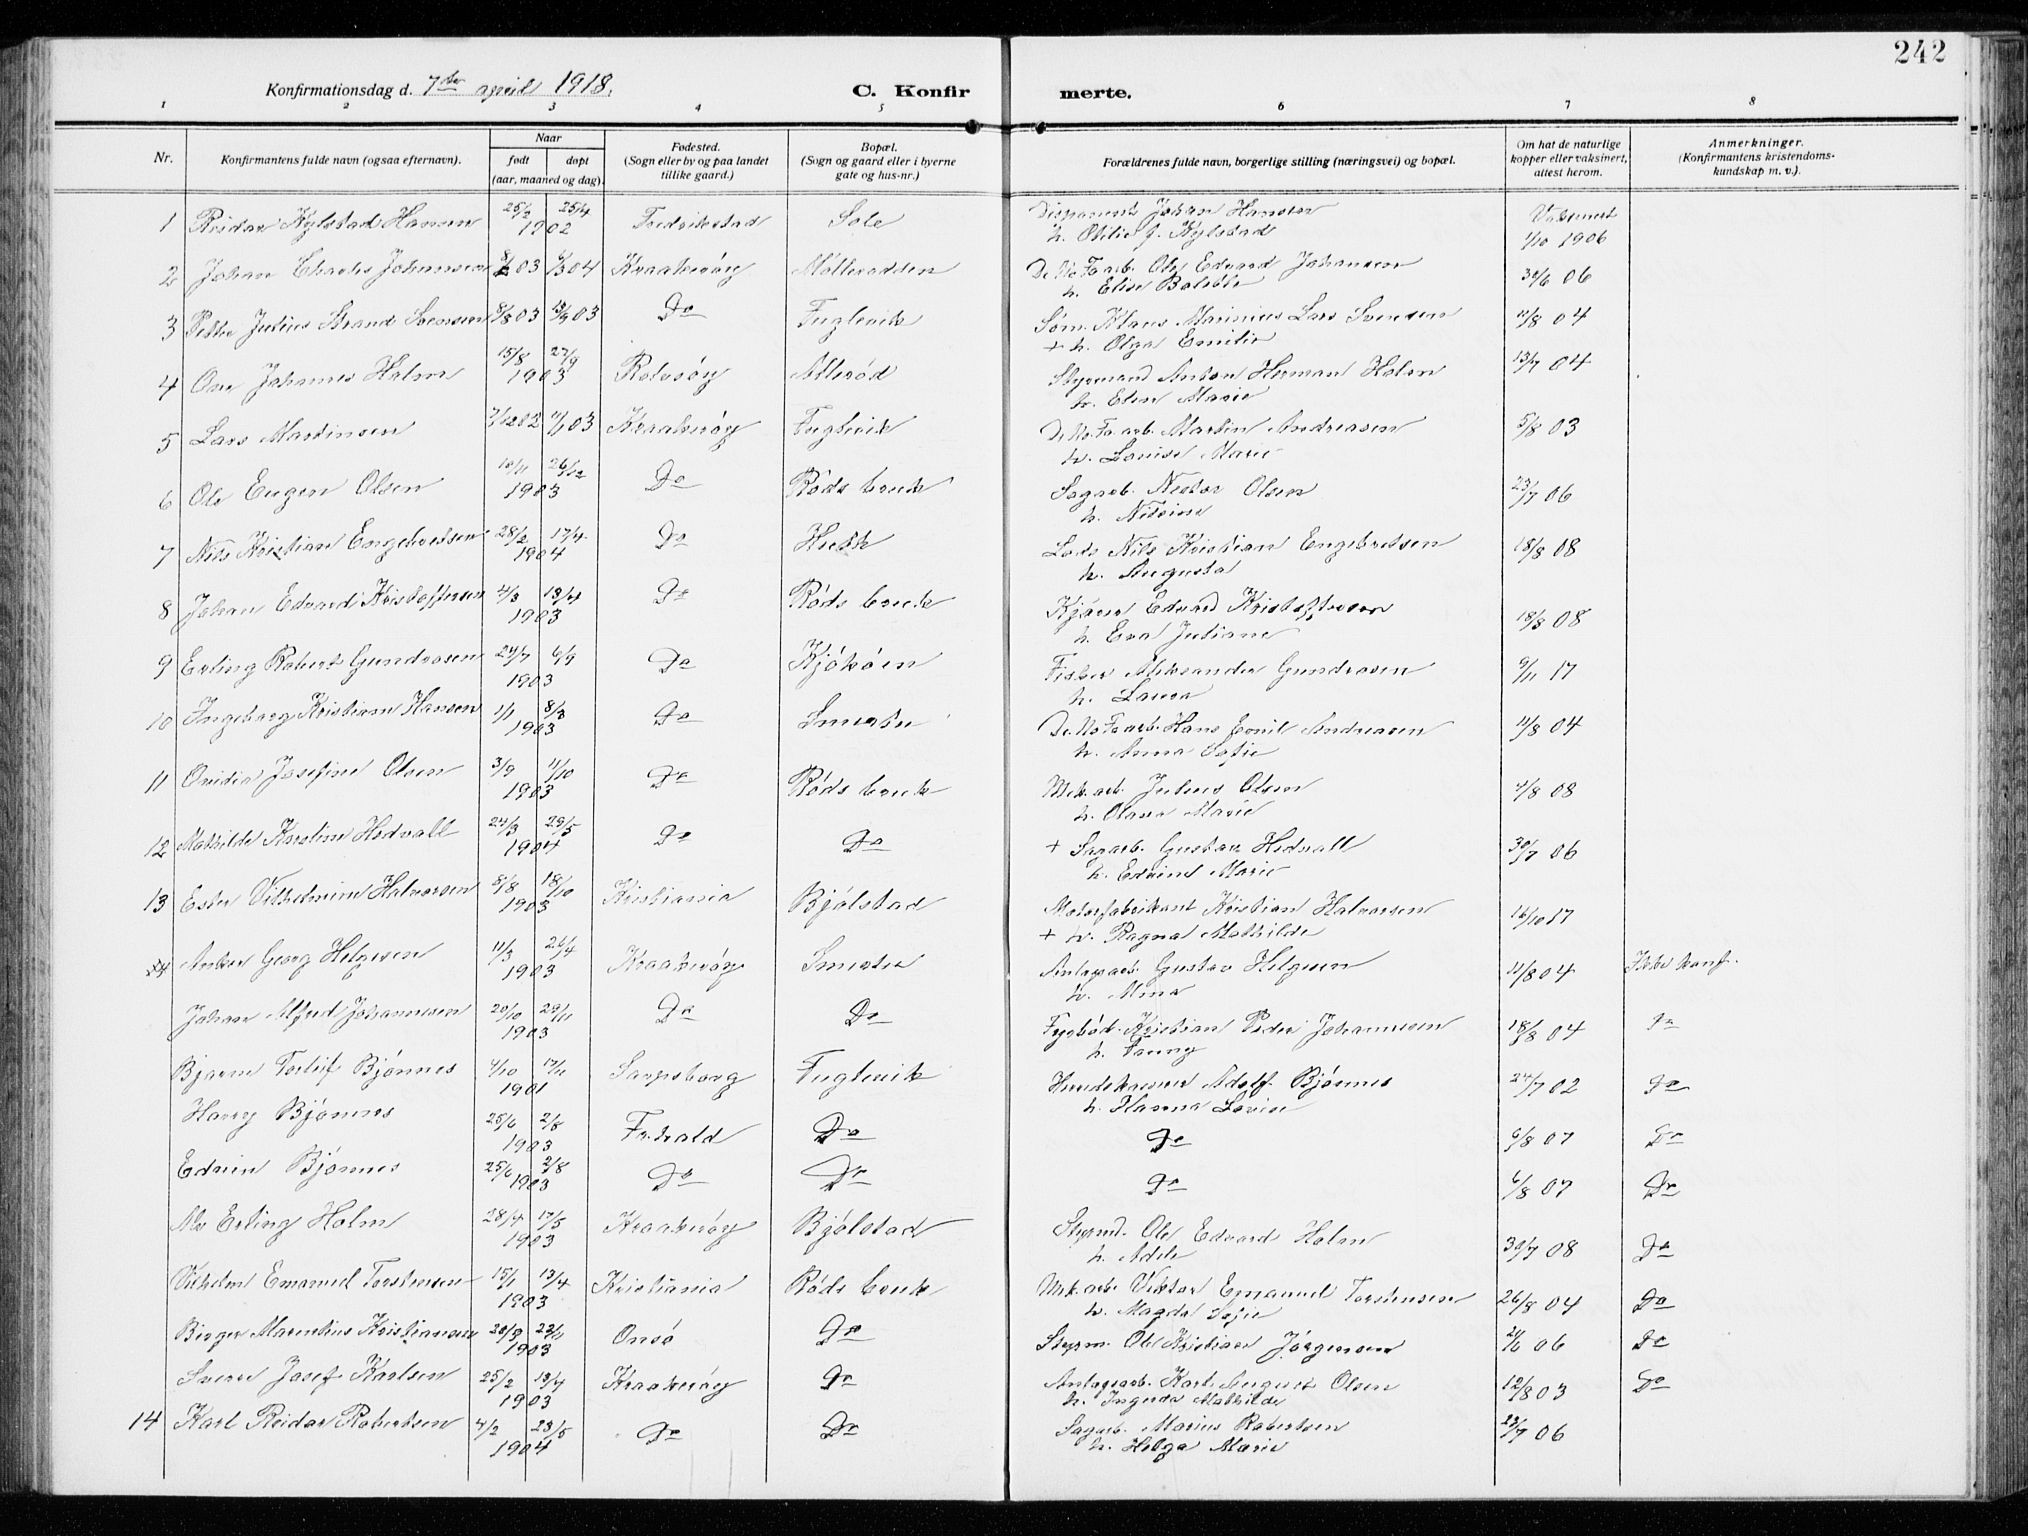 242
Konfirmationsdag d. 7de april 1918.
C. Konfir merte.
1 2 3 4 5 6 7 8
Nr.
Konfirmantens fulde navn (ogsaa efternavn).
Naar
født døpt
(aar, maaned og dag).
Fødested.
(Sogn eller by og paa landet
tillike gaard.)
Bopæl.
(Sogn og gaard eller i byerne
gate og hus-nr.)
Forældrenes fulde navn, borgerlige stilling (næringsvei) og bopæl.
Om hat de naturlige
kopper eller vaksinert,
attest herom.
Anmerkninger.
(Konfirmantens kristendoms-
kundskap m. v.).
1 Reidar Kylstad Hansen 25/2 25/4 Fredrikstad Sole Disponent Johan Hansen Vaksinert
1902 h. Otilie f. Kylstad 1/10 1906
2 Johan Charles Johansen 03 04 Kraakerøy Møllerodden De No Fa arb. Ole Edvard Johansen 30/6 06
h. Elise Bolette
3 Petter Julius Strand Svensen 8/8 03 13/9 03 Do Fuglevik Søm. Klaus Marinius Lars Svensen 11/8 04
+ h. Olga Emilie
4 Ove Johannes Holm 15/8 27/9 Rolvsøy Allerød Styrmand Anton Herman Holm 13/7 04
1903 h. Elen Marie
5 Lars Martinsen 7/12 02 11/1 03 Kraakerøy Fuglevik De No. Fa arb. Martin Andreasen 5/8 03
h. Lovise Marie
6 Ole Eugen Olsen 10/11 26/12 Do Røds bruk Sagarb. Nestor Olsen 23/7 06
1903 h. Nilsine
7 Nils Kristian Engebretsen 28/2 17/4 Do Huth Lods Nils Kristian Engebretsen 18/8 08
1904 h. Augusta
8 Johan Edvard Kristoffersen 4/3 13/4 Do Røds bruk Kjører Edvard Kristoffersen 18/8 08
1903 h. Eva Juliane
9 Erling Robert Gundrosen 24/7 6/9 Do Kjøkøen Fisker Aleksander Gundrosen 9/11 17
1903 h. Laura
10 Ingeborg Kristiane Hansen 1/1 8/3 Do Smertu De. No Fa arb. Hans Emil Andreasen 11/8 04
1903 h. Anna Sofie
11 Ovidia Josefine Olsen 3/9 11/10 Do Røds bruk Mek. arb. Julius Olsen 4/8 08
1903 h. Olava Marie
12 Mathilde Karoline Hedvall 24/3 29/5 Do Do + Sagarb. Gustav Hedvall 30/7 06
1904 h. Edvine Marie
13 Ester Vilhelmine Halvorsen 8/8 18/10 Kristiania Bjølstad Motorfabrikant Kristian Halvorsen 16/10 17
1903 + h. Ragna Mathilde
14 Anker Georg Helgesen 11/3 26/4 Kraakerøy Smertu Anlægsarb. Gustav Helgesen 11/8 04 Ikke konf.
1903 h. Mina
Johan Alfred Johannesen 20/10 29/11 Do Do Fyrbød. Kristian Peder Johannesen 18/8 04 Do
1903 h. Fanny
Bjarne Torleif Bjønnes 4/10 17/11 Sarpsborg Fuglevik Adolf Bjønnes 24/7 02 Do
1901 h. Hanna Lovise
Harry Bjønnes 25/6 2/8 Do Do 6/8 07 Do
1903
Edvin Bjønnes 25/6 2/8 Do Do Do 6/8 07 Do
1903
Alv Erling Holm 28/4 17/5 Kraakerøy Bjølstad Styrmd. Ole Edvard Holm 30/7 08 Do
1903 h. Adele
Vilhelm Emanuel Torstensen 15/1 13/4 Kristiania Røds bruk Mek. arb. Viktor Emanuel Torstensen 26/8 04 Do
1903 h. Magda Sofie
Birger Marentius Kristiansen 20/9 22/11 Onsø Do Styrm. Ole Kristian Jørgensen 06 Do
1903
Sverre Josef Karlsen 25/2 13/4 Kraakerøy Do Anlægsarb. Karl August Olsen 12/8 03 Do
1903 h. Ingerda Mathilde
14 Karl Reidar Robertsen 4/2 23/5 Do Do Sagarb. Marius Robertsen 23/7 06
1904 h. Helga Marie